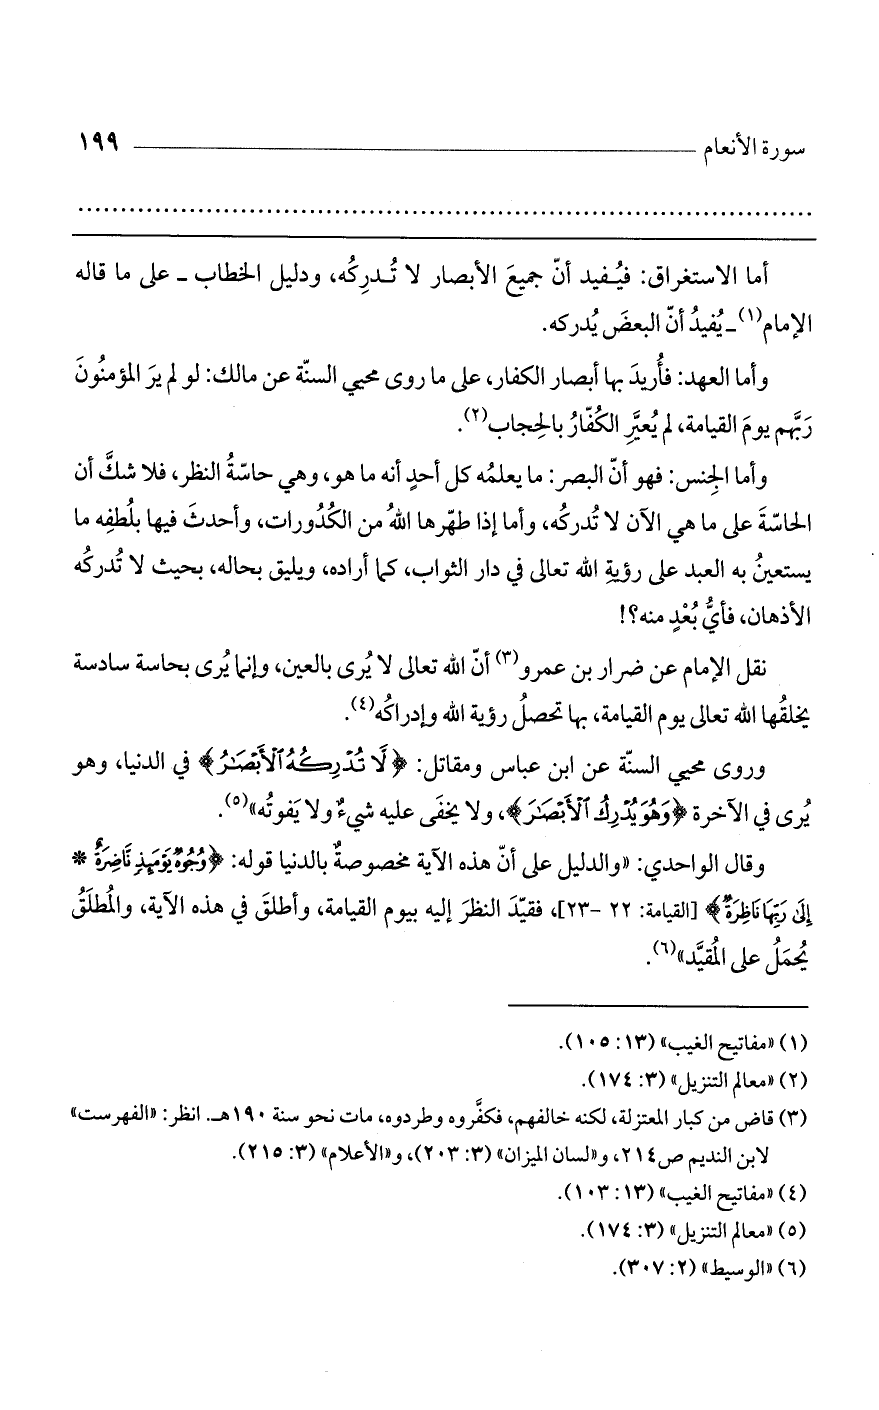 سورة الأنعام ١٩٩
أما الاستغراق: فيُفيد أنّ جميعَ الأبصار لا تُدرِكُه، ودليل الخطاب ـ على ما قاله
الإمام(١) ـ يُفيدُ أنّ البعضَ يُدركه.
وأما العهد: فأُريدَ بها أبصار الكفار، على ما روى محيي السنّة عن مالك: لو لم يرَ المؤمنُونَ
رَبَّهم يومَ القيامة، لم يُعيَّرِ الكُفّارُ بالحِجاب(٢).
وأما الجِنس: فهو أنّ البصر: ما يعلمُه كل أحدٍ أنه ما هو، وهي حاسّةُ النظر، فلا شكَّ أن
الحاسّةَ على ما هي الآن لا تُدركُه، وأما إذا طهّرها اللهُ من الكُدُورات، وأحدثَ فيها بلُطفِه ما
يستعينُ به العبد على رؤيةِ الله تعالى في دار الثواب، كما أراده، ويليق بحاله، بحيث لا تُدركُه
الأذهان، فأيُّ بُعْدٍ منه؟!
نقل الإمام عن ضرار بن عمرو(٣) أنّ الله تعالى لا يُرى بالعين، وإنما يُرى بحاسة سادسة
يخلقُها الله تعالى يوم القيامة، بها تحصلُ رؤية الله وإدراكُه(٤).
وروى محيي السنّة عن ابن عباس ومقاتل: ﴿لَّا تُدْرِكُهُ ٱلْأَبْصَٰرُ﴾ في الدنيا، وهو
يُرى في الآخرة ﴿وَهُوَ يُدْرِكُ ٱلْأَبْصَٰرَ﴾، ولا يخفَى عليه شيءٌ ولا يَفوتُه»(٥).
وقال الواحدي: «والدليل على أنّ هذه الآية مخصوصةٌ بالدنيا قوله: ﴿وُجُوهٌ يَوْمَئِذٍ نَّاضِرَةٌ *
إِلَىٰ رَبِّهَا نَاظِرَةٌ﴾ [القيامة: ٢٢ -٢٣]، فقيّدَ النظرَ إليه بيوم القيامة، وأطلقَ في هذه الآية، والمُطلَقُ
يُحمَلُ على المُقيَّد»(٦).
(١) «مفاتيح الغيب» (١٣: ١٠٥).
(٢) «معالم التنزيل» (٣: ١٧٤).
(٣) قاض من كبار المعتزلة، لكنه خالفهم، فكفَّروه وطردوه، مات نحو سنة ١٩٠هـ. انظر: «الفهرست»
لابن النديم ص٢١٤، و«لسان الميزان» (٣: ٢٠٣)، و«الأعلام» (٣: ٢١٥).
(٤) «مفاتيح الغيب» (١٣: ١٠٣).
(٥) «معالم التنزيل» (٣: ١٧٤).
(٦) «الوسيط» (٢: ٣٠٧).